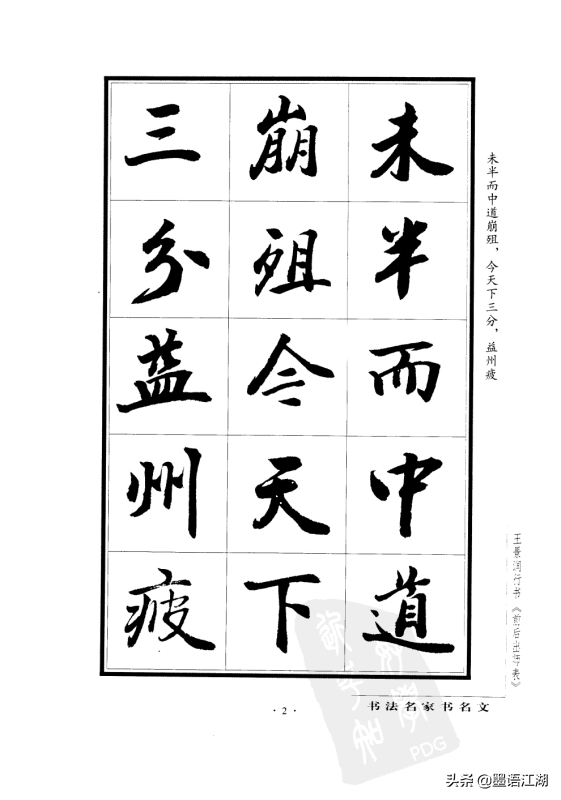 未半而中道
崩殂今天下
三分益州疲
未半而中道崩殂，今天下三分，益州疲
王景润行书《前后出师表》
书法名家书名文
·2·
PDG
头条@墨语江湖